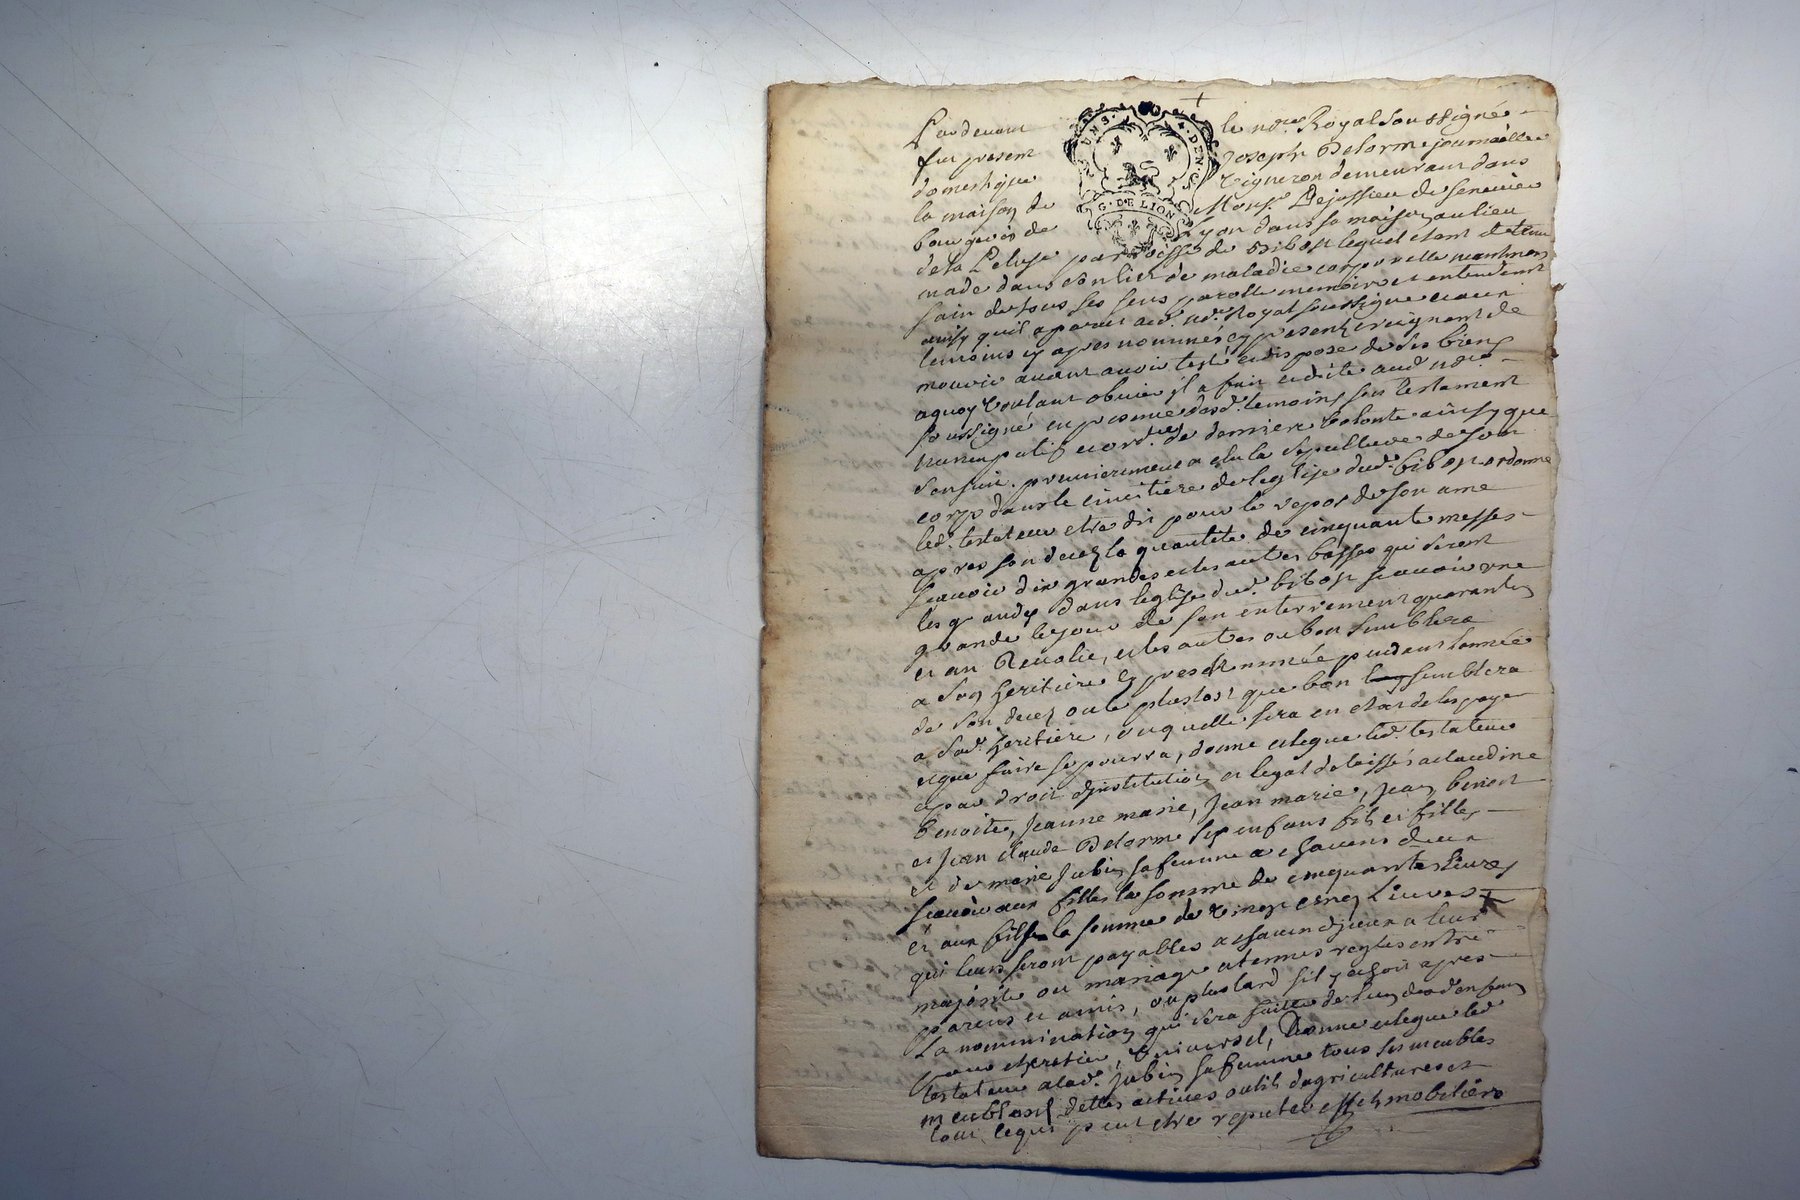 Pardevant le no.re Royal Soussigné
fut present Joseph Delorme journaillier
domestique vigneron demeurant dans
la maison de Mons.r Dejussieu de
bourgeois de Lyon dans sa maison au lieu
de la paroisse de Bibost lequel étant detenu
malade dans son lit de maladie corporelle neantmoins
sain de tous ses sens parolle memoire et entendement
ainsy quil aparut aud. no.re Royal soussigné et aux
temoins cy apres nommés et presents craignant de
mourir avant avoir testé et disposé de ses biens
aquoy voulant obvier il a fait et dicté aud no.re
soussigné en presence desd. temoins son testament
nuncupatif et ord.ce de derniere volonté ainsy que
sensuit. premierement a elu la sepulture de son
corps dans le cimetiere de leglise dud. bibost ordonne
led. testateur etre dit pour le repos de son ame
apres son decez la quantité de cinquante messes
scavoir dix grandes et les autres basses qui seront
les grandes dans leglise dud. bibost scavoir une
grande le jour de son enterrement quarantin
et an Revolu, et les autres ou bon semblera
a son heritiere cy apres nommée pendant lannée
de son decez ou le plustost que bon semblera
a sad. heritiere, ou quelle sera en etat de les payer
et que faire se pourra, donne et legue led. testateur
et par droit dinstitution et legat delaissés a claudine
benoite, jeanne marie, jean marie, jean, benoit
et jean claude Delorme ses enfans fils et filles
et de marie jubin sa femme a chacuns deux
scavoir aux filles la somme de cinquante Livres
et aux fils la somme de vingt cinq Livres
qui leurs seront payables a chacun deux a leur
majorité ou mariage a termes reglés entre
parens et amis, ou plus tard sil y echoit apres
La nommination qui sera faitte de lun desd. enfans
pour heritier universel, Donne et legue led
testateur a lad. jubin sa femme tous ses meubles
dettes actives outils dagriculture et
tout ce qui peut etre reputé effets mobiliers
G. DE LION